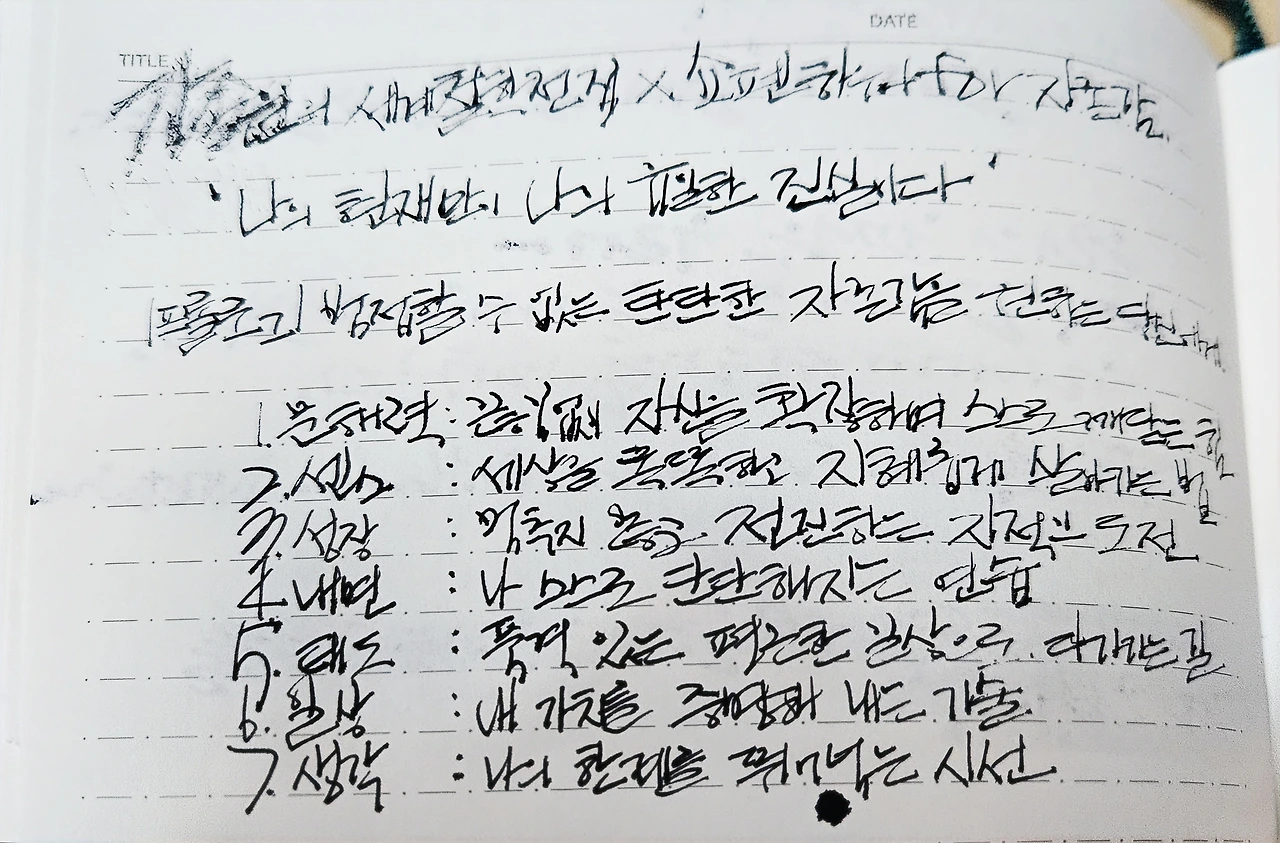 DATE
TITLE
김종원의 세계철학전집 X 쇼펜하우어 자존감
'나의 현재만이 나의 유일한 진실이다'
|프롤로그| 범접할 수 없는 단단한 자존감을 원하는 당신에게
1. 문해력 : 끝없이 자신을 확장하며 스스로 깨닫는 힘
2. 센스 : 세상을 똑똑하고 지혜롭게 살아가는 법
3. 성장 : 멈추지 않고 전진하는 지적인 도전
4. 내면 : 나 스스로 단단해지는 연습
5. 태도 : 품격 있는 평온한 일상으로 다가가는 길
6. 일상 : 내 가치를 증명해 내는 기술
7. 생각 : 나의 한계를 뛰어넘는 시선